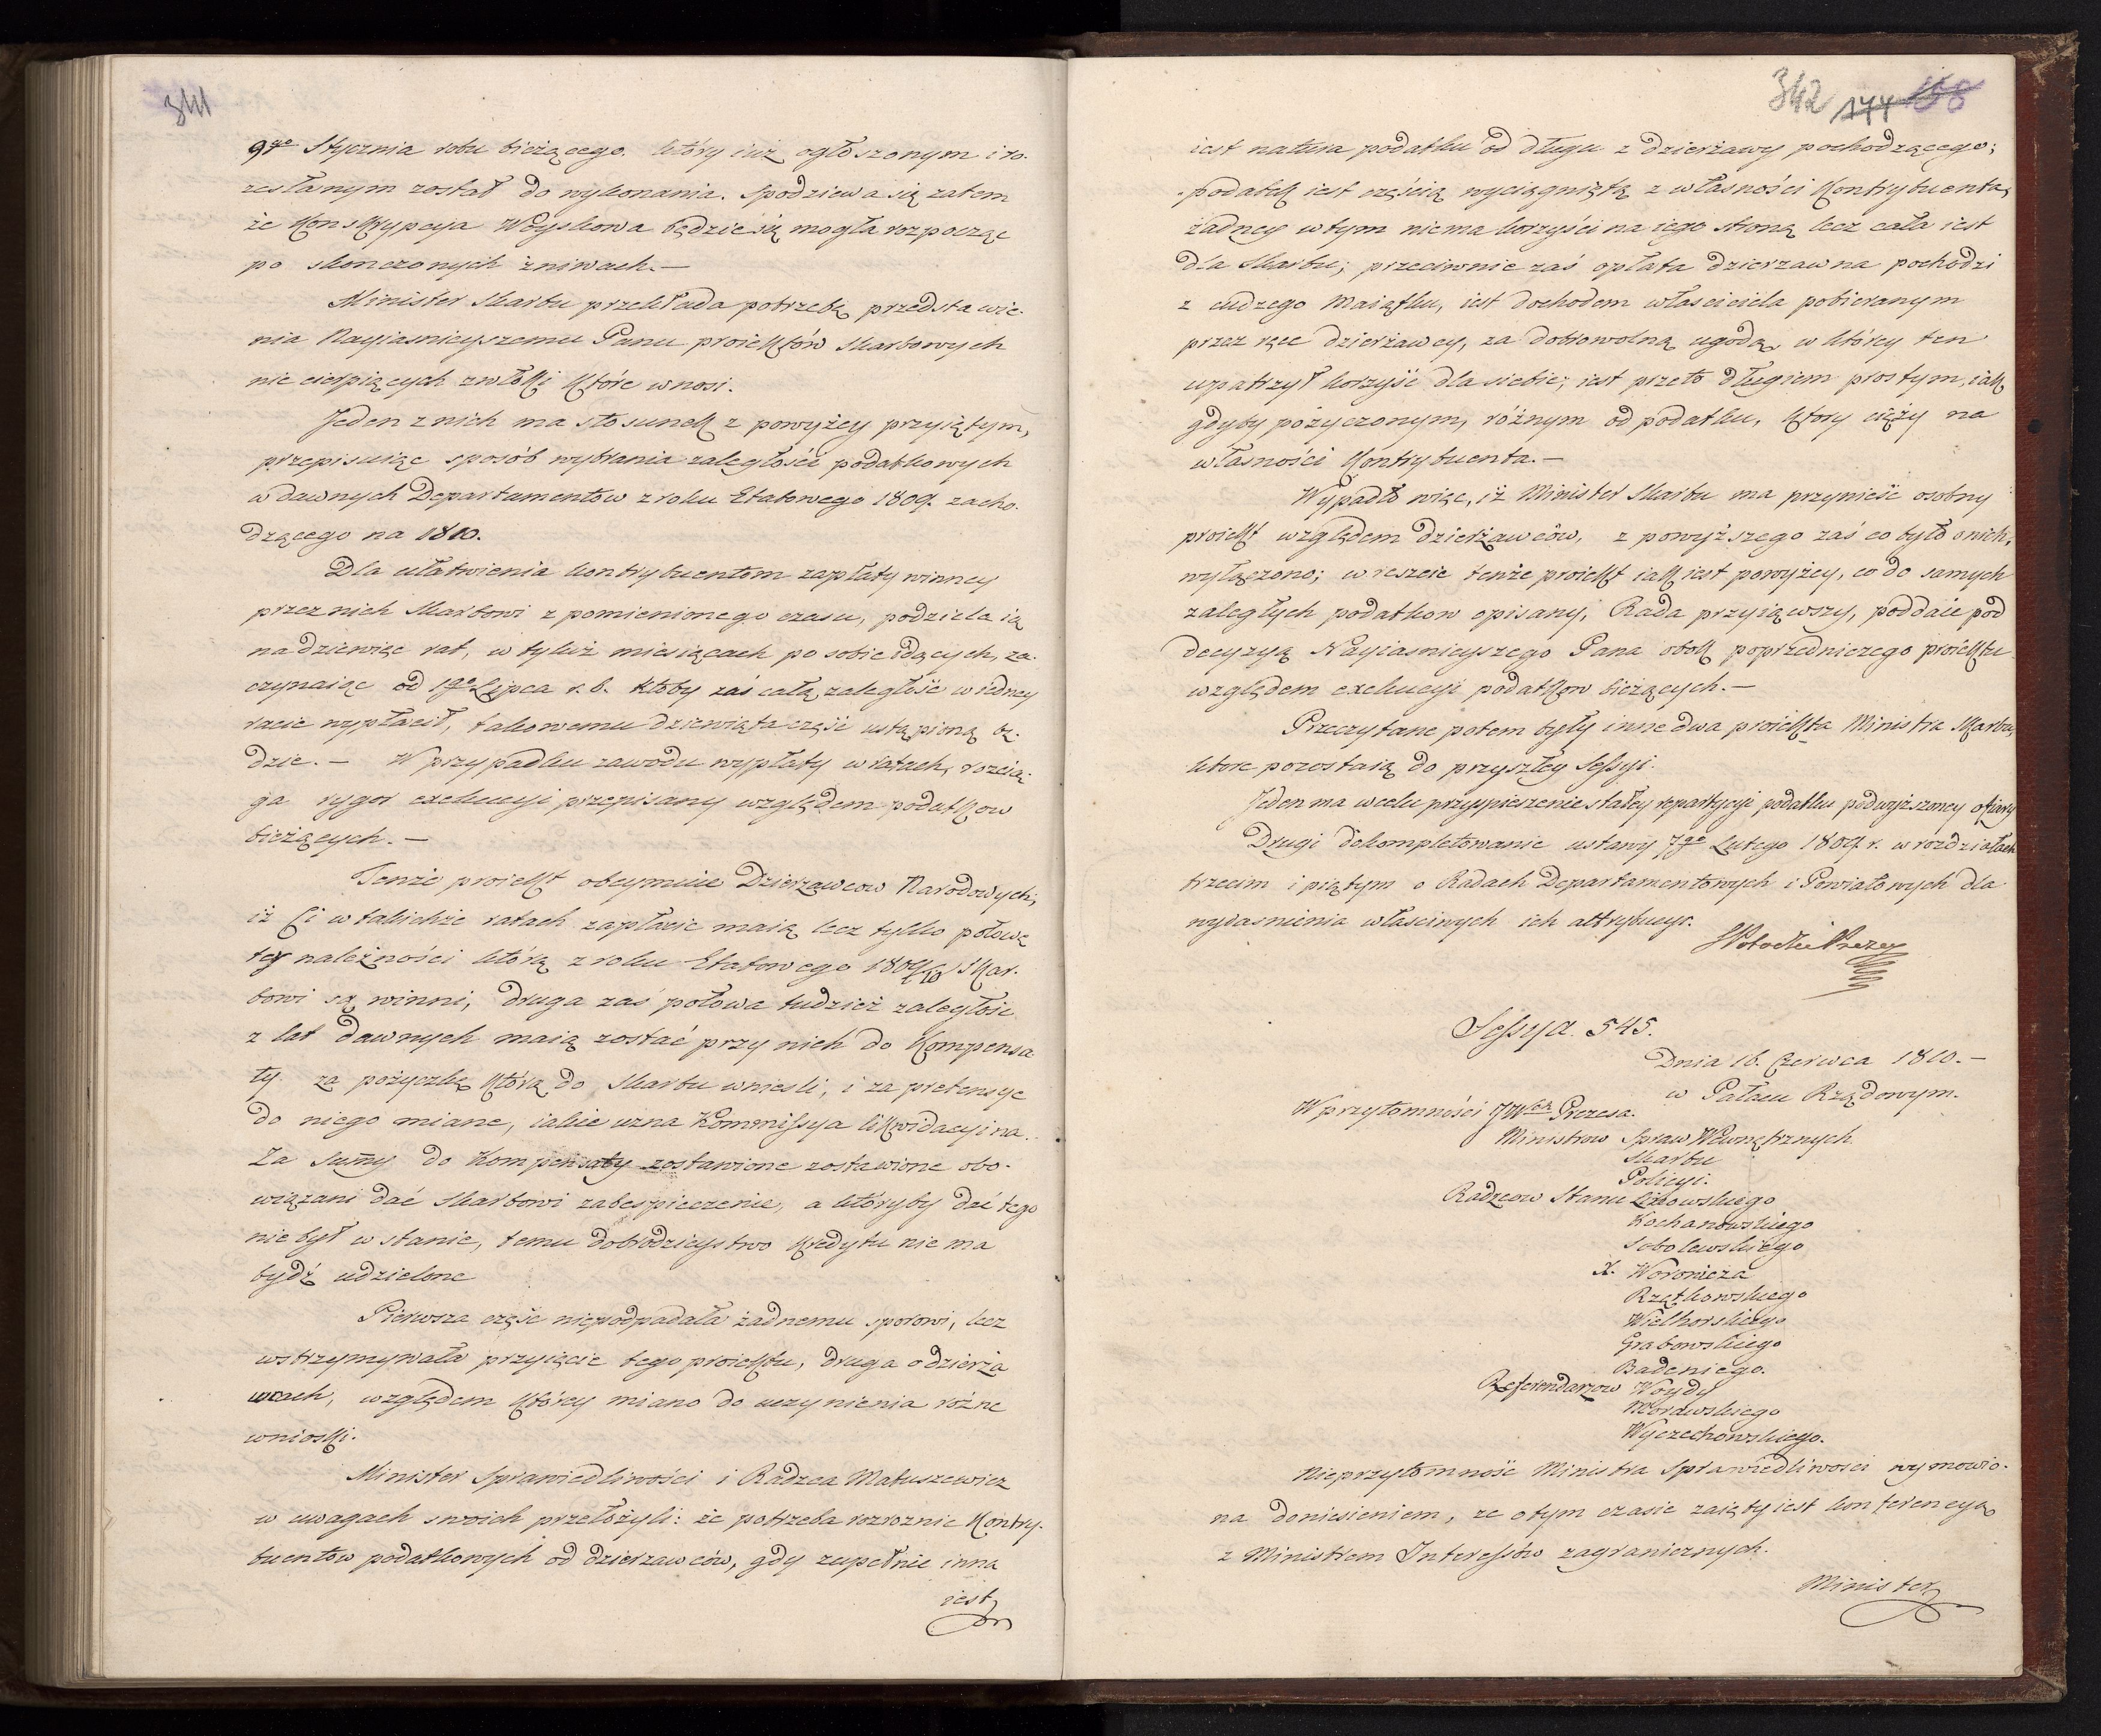 341
9go Stycznia roku bieżącego. który iuż ogłoszonym i ro-
zesłanym został do wykonania. Spodziewa się zatem
że Konskrypcyja Woyskowa będzie się mogła rozpocząć
po skonczonych żniwach.—
Minister Skarbu przekłada potrzebę przedstawie-
nia Nayiasnieyszemu Panu proiektów skarbowych
nie cierpiących zwłoki które wnosi.
Jeden z nich ma stosunek z powyżey przyiętym,
przepisuiąc sposób wybrania zaległości podatkowych
w dawnych Departamentów z roku Etatowego 1809. zacho-
dzącego na 1810.
Dla ułatwienia kontrybuentom zapłaty winney
przez nich Skarbowi z pomienionego czasu, podziela ią
na dziewięć rat, w tyluż miesiącach po sobie idących, za-
czynaiąc od 1go Lipca r. b. ktoby zaś całą zaległość w iedney
racie wypłacił, takowemu dziewiąta część ustąpioną bę-
dzie.— W przypadku zawodu wypłaty w ratach, rozcią-
ga rygor exekucyi przepisany względem podatkow
bieżących.—
Tenże proiekt obeymuie Dzierzawcow Narodowych;
iż Ci w takichże ratach zapłacić maią lecz tylko połowę
tey należności którą z roku Etatowego 1809/10 Skar-
bowi są winni, druga zaś połowa tudzież zaległość
z lat dawnych maią zostać przy nich do Kompensa
ty za pożyczkę którą do Skarbu wnieśli, i za pretensye
do niego miane, iakie uzna Kommissya likwidacyina.
Za summy do Kompensaty zostawione zostawione obo-
wiązani dać Skarbowi zabespieczenie, a któryby dać tego
nie był w stanie, temu dobrodzieystwo kredytu nie ma
bydź udzielone
Pierwsza część niepodpadała żadnemu sporowi, lecz
wstrzymywała przyięcie tego proiektu, druga o dzierża
wach, względem którey miano do uczynienia różne
wnioski.
Minister Sprawiedliwości i Radzca Matuszewicz
w uwagach swoich przełożyli: że potrzeba rozroznić Kontry-
buentów podatkowych od dzierzawców, gdy zupełnie inna
iest
342 177 158
iest natura podatku od długu z dzierżawy pochodzącego;
podatek iest częścią wyciągniętą z własności Kontrybuenta,
żadney w tym niema korzyści na iego stronę lecz cała iest
dla Skarbu; przeciwnie zaś opłata dzierzawna pochodzi
z cudzego Maiątku, iest dochodem właściciela pobieranym
przez ręce dzierżawcy, za dobrowolną ugodą, w którey ten
upatrzył korzyść dla siebie; iest przeto długiem prostym, iak
gdyby pożyczonym, różnym od podatku, ktory ciąży na
własności Kontrybuenta.—
Wypadło więc, iż Minister Skarbu ma przynieść osobny
proiekt względem dzierżawców, z powyższego zaś co było o nich,
wyłączono; w reszcie tenże proiekt iak iest powyżey, co do samych
zaległych podatkow opisany, Rada przyiąwszy, poddaie pod
decyzyą Nayiasnieyszego Pana obok poprzedniczego proiektu
względem exekucyi podatkow bieżących.—
Przeczytane potem były inne dwa proiekta Ministra Skarbu,
ktore pozostaią do przyszłey Sessyi.
Jeden ma w celu przyspieszenie stałey repartycyi podatku podwyższoney ofiary
Drugi dokompletowanie ustawy 7go Lutego 1809. r. w rozdziałach
trzecim i piątym o Radach Departamentowych i Powiatowych dla
wyiasnienia właściwych ich attrybucyi.
Sessya. 545.
Dnia 16. Czerwca 1810.—
w Pałacu Rządowym.
W przytomności JWch Prezesa.
Ministrow Spraw Wewnętrznych
Skarbu
Policyi.
Radzcow Stanu Linowskiego
Kochanowskiego
Sobolewskiego
X. Woronicza
Rzętkowskiego
Wielhorskiego
Grabowskiego
Badeniego.
Referendarzow Woydy
Morawskiego
Wyczechowskiego.
Nieprzytomność Ministra Sprawiedliwosci wymowio-
na doniesieniem, ze o tym czasie zaięty iest konferencyą
z Ministrem Interessów zagranicznych.
Minister